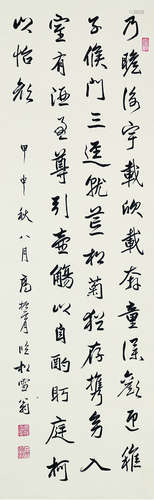 乃瞻衡宇載欣載奔童僕歡迎稚
子候門三逕就荒松菊猶存攜幼入
室有酒盈尊引壺觴以自酌眄庭柯
以怡顏
甲申秋八月 臨松雪翁